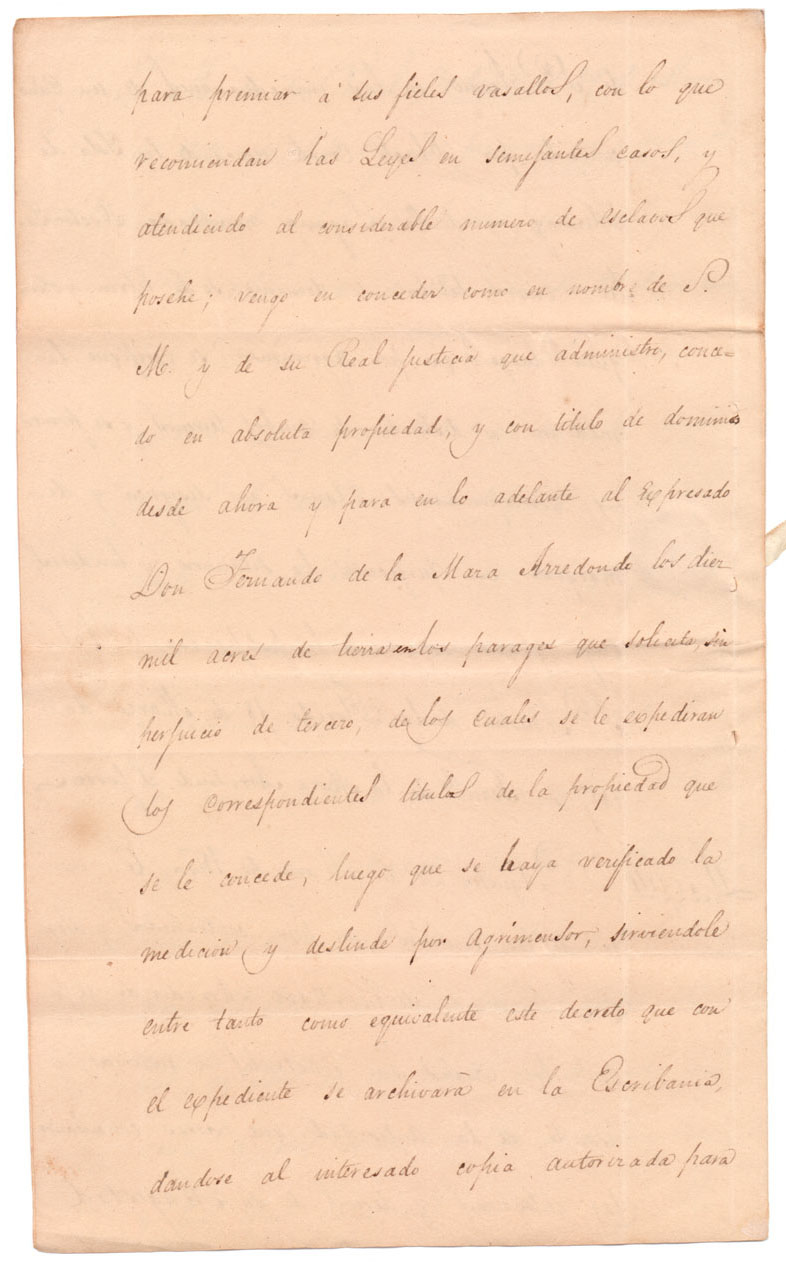 para premiar á sus fieles vasallos, con lo que
recomiendan las Leyes en semejantes casos, y
atendiendo al considerable numero de esclavos que
posehe; vengo en conceder como en nombre de S.
M. y de su Real Justicia que administro, conce=
do en absoluta propiedad, y con titulo de dominio
desde ahora y para en lo adelante al expresado
Don Fernando de la Maza Arredondo los diez
mil acres de tierra en los parages que solicita, sin
perjuicio de tercero, de los cuales se le expediran
los correspondientes titulos de la propiedad que
se le concede, luego que se haya verificado la
medicion y deslinde por Agrimensor, sirviendole
entre tanto como equivalente este decreto que con
el expediente se archivará en la Escribania,
dandose al interesado copia autorizada para